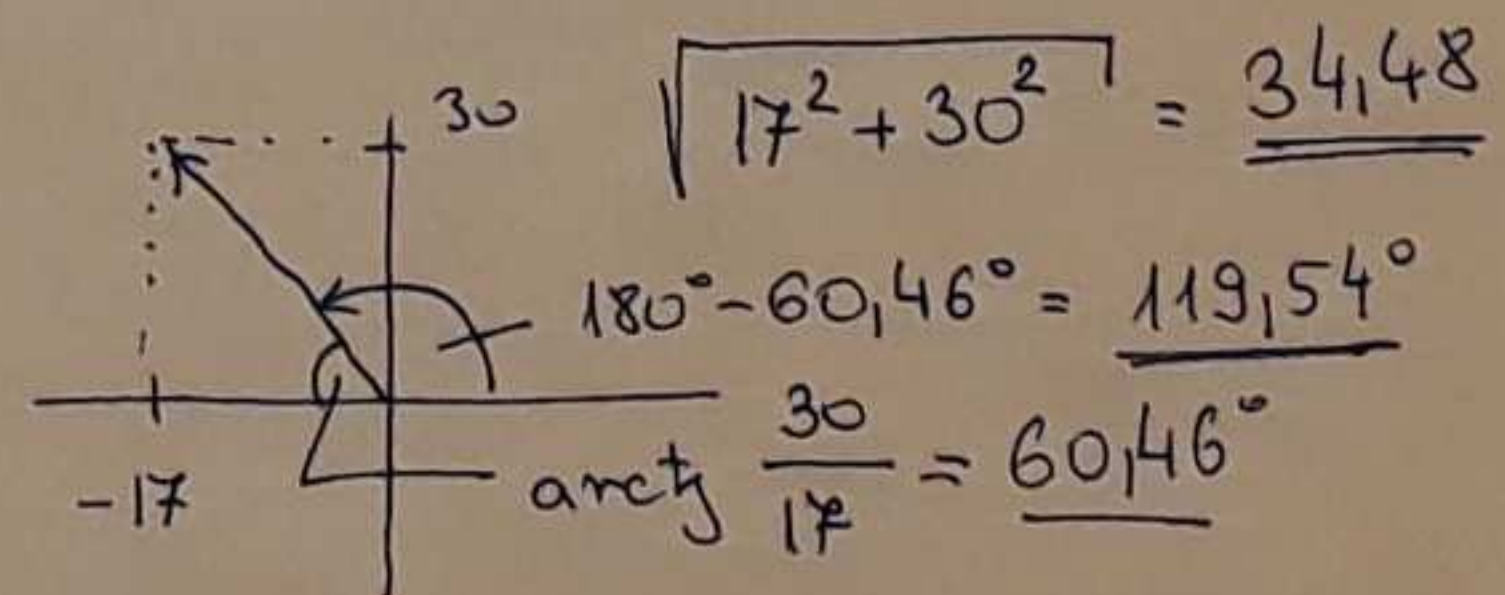 30
√(17² + 30²) = 34,48
180° - 60,46° = 119,54°
-17
arctg 30/17 = 60,46°